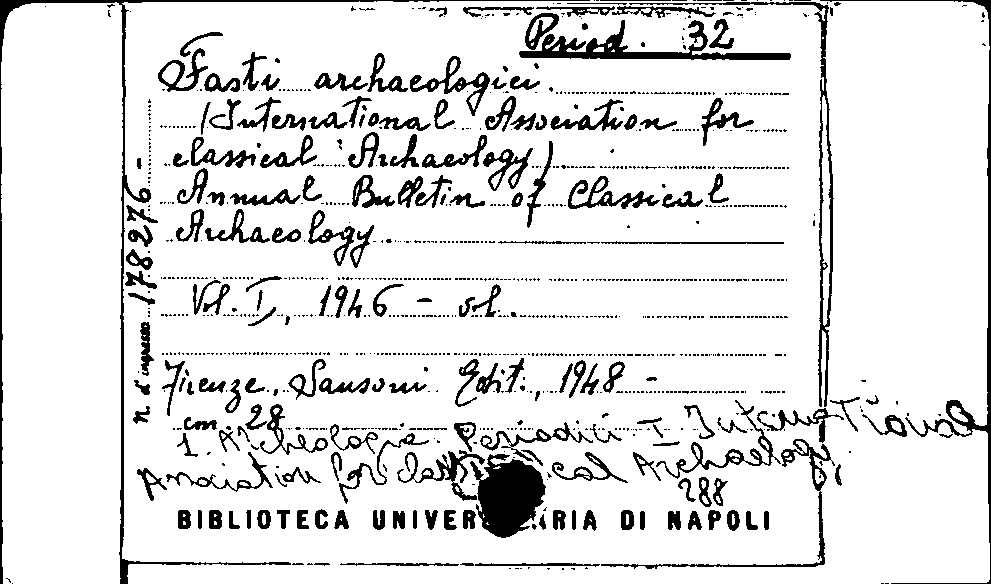 Period. 32
Fasti archaeologici.
(International Association for
classical Archaeology)
Annual Bulletin of Classical
Archaeology.
Vol. I, 1946 -
Firenze, Sansoni Edit., 1948 -
cm. 28
1. Archeologia. Periodici I International
Association for classical Archaeology
288
BIBLIOTECA UNIVER RIA DI NAPOLI
n. d'ingresso 178276 -